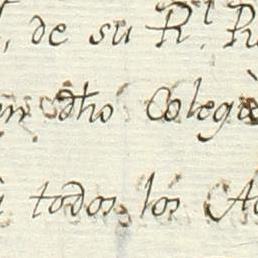 , de su R.l R
en dho Colegi
todos los A